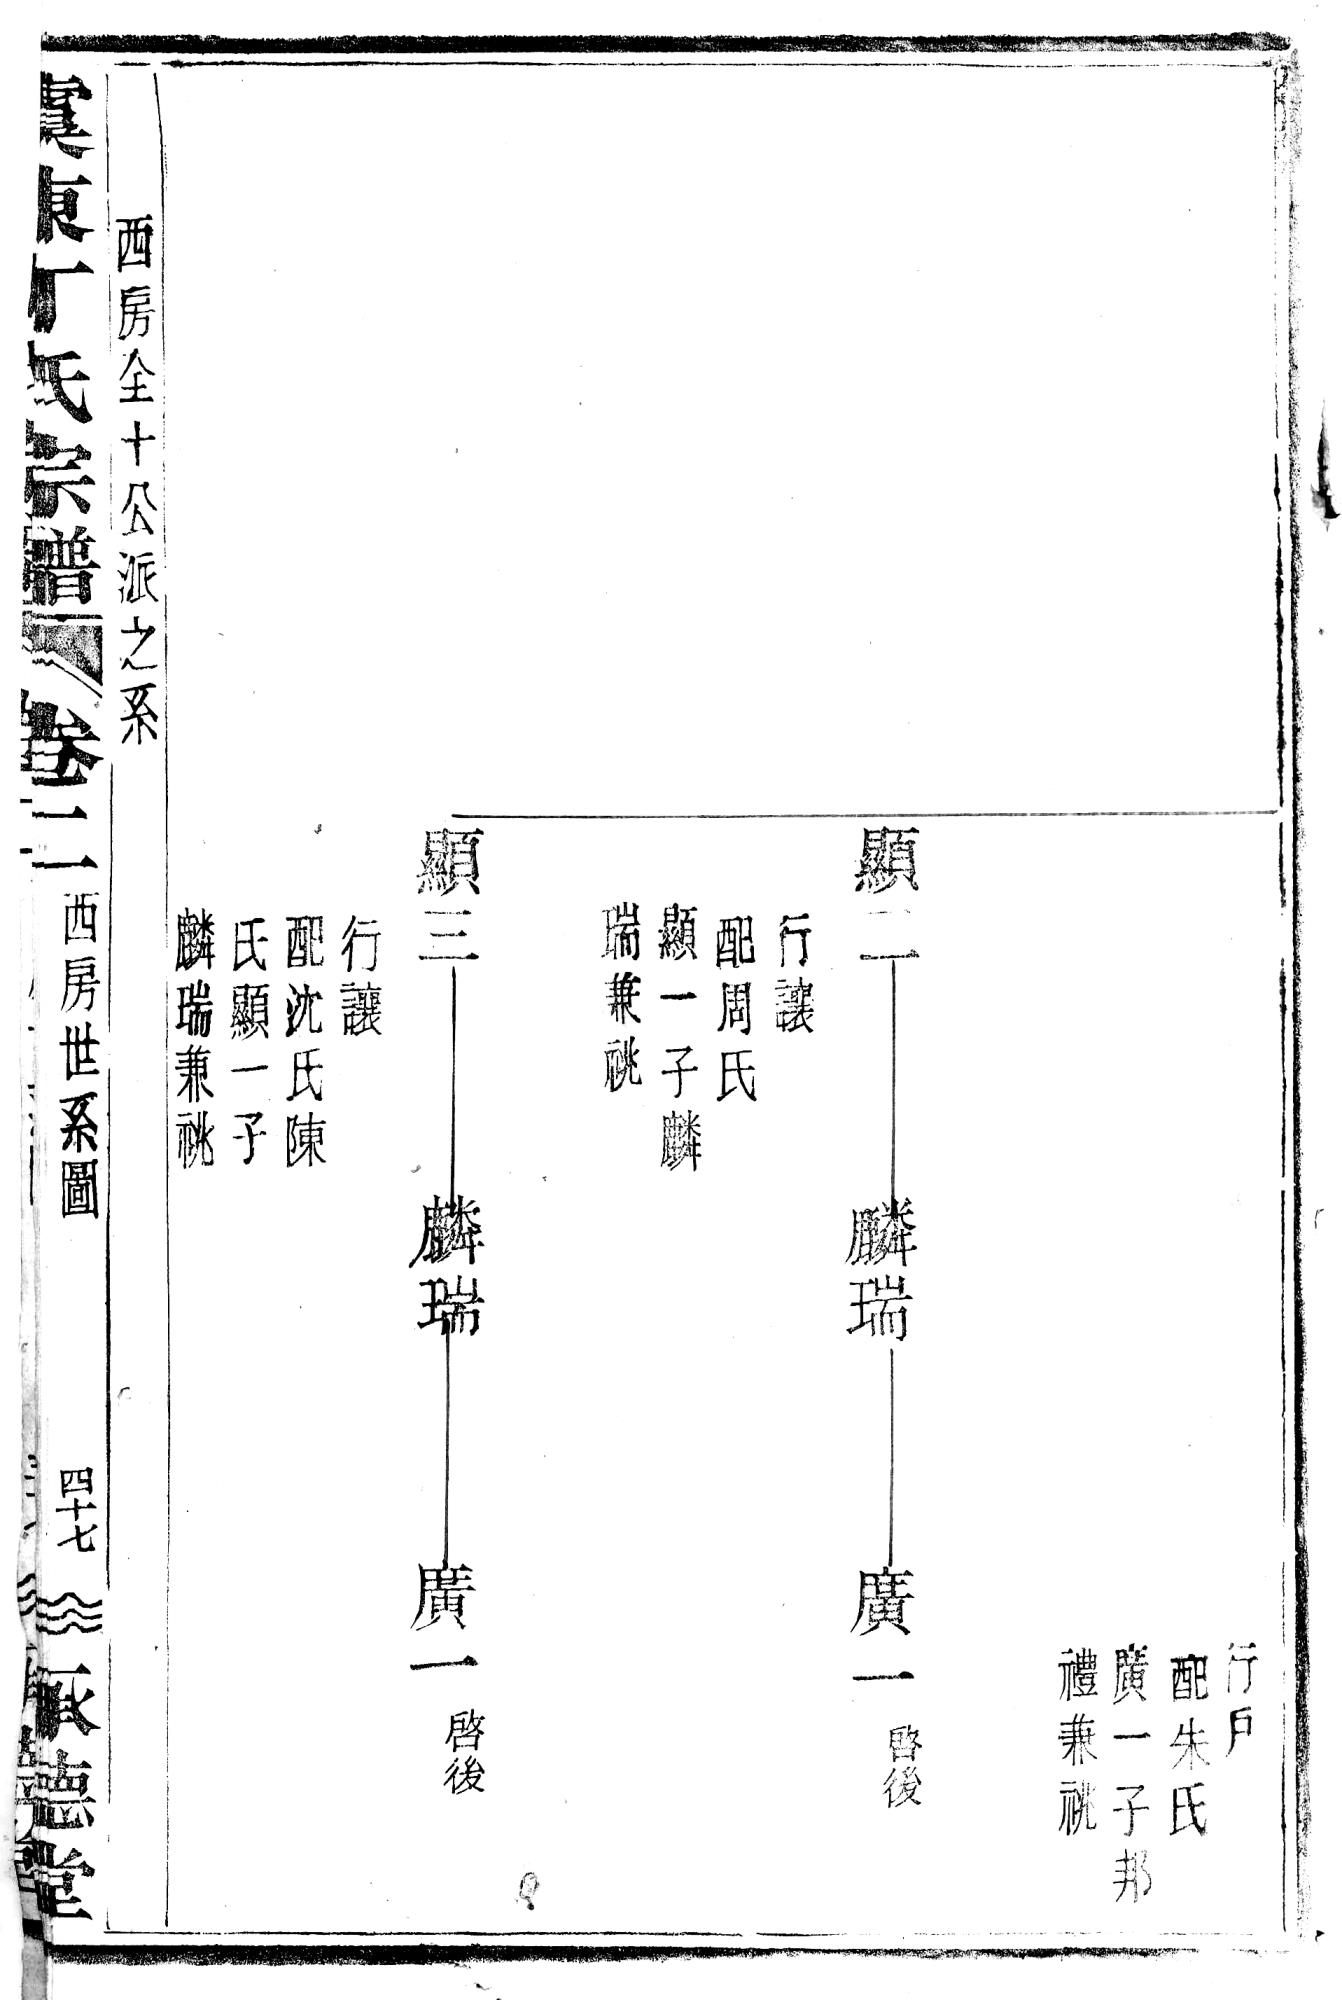 行戶
配朱氏
廣一子邦
禮兼祧
顯二
麟瑞
廣一
啓後
行讓
配周氏
顯一子麟
瑞兼祧
顯三
麟瑞
廣一
啓後
行讓
配沈氏陳
氏顯一子
麟瑞兼祧
西房全十公派之系
虞東丁氏宗譜
卷二
西房世系圖
四十七
承德堂